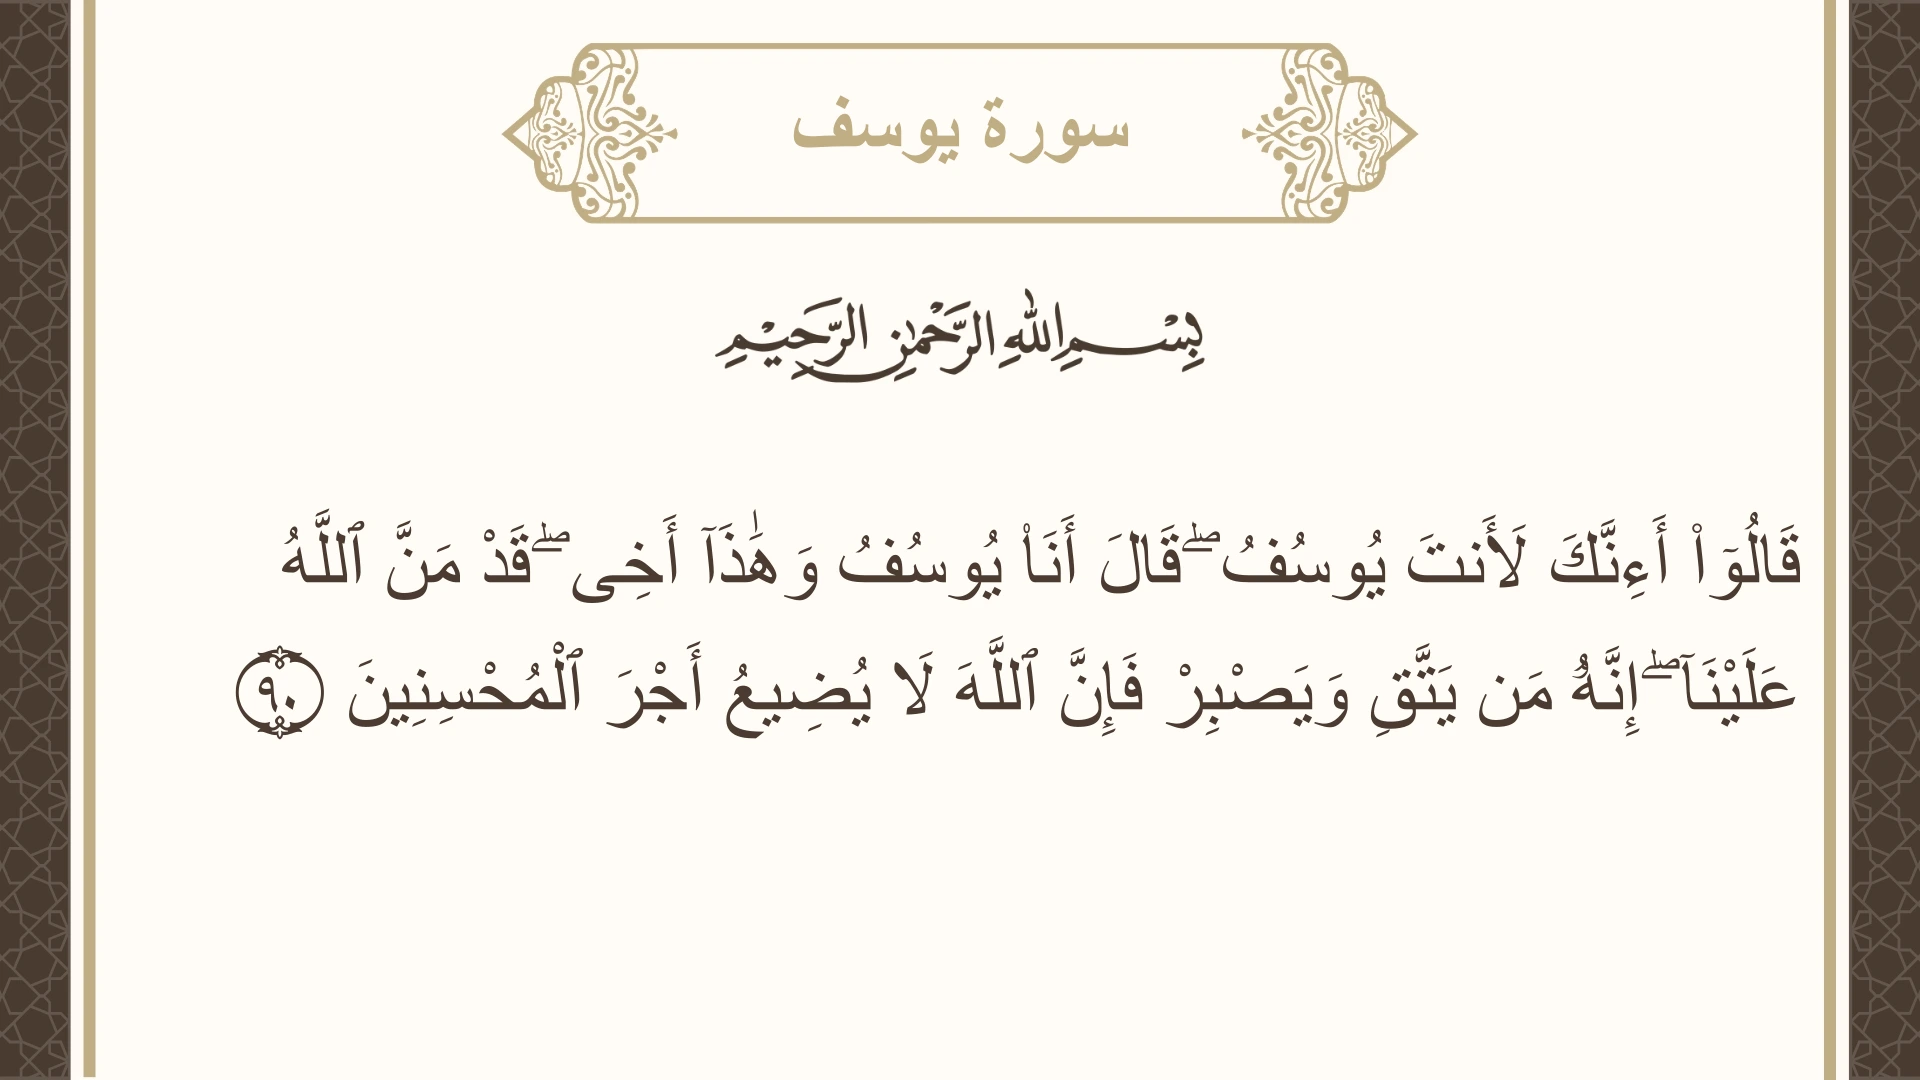 سورة يوسف
بِسْمِ اللهِ الرَّحْمٰنِ الرَّحِيْمِ
قَالُوٓا۟ أَءِنَّكَ لَأَنتَ يُوسُفُ ۖ قَالَ أَنَا۠ يُوسُفُ وَهَٰذَآ أَخِى ۖ قَدْ مَنَّ ٱللَّهُ
عَلَيْنَآ ۖ إِنَّهُۥ مَن يَتَّقِ وَيَصْبِرْ فَإِنَّ ٱللَّهَ لَا يُضِيعُ أَجْرَ ٱلْمُحْسِنِينَ ۝٩٠